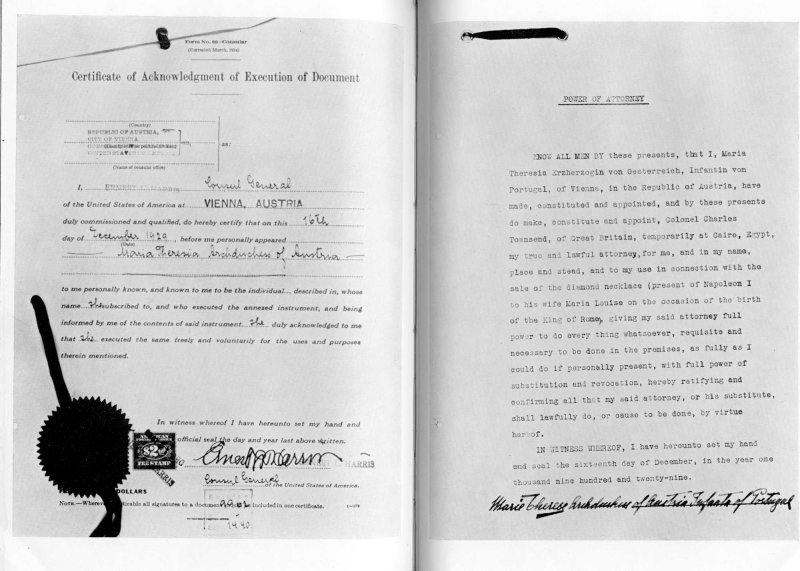 Form No. 88—Consular
(Corrected March, 1924)
Certificate of Acknowledgment of Execution of Document
(Country)
REPUBLIC OF AUSTRIA,
CITY OF VIENNA
ss:
(Name of consular office)
I, ERNEST L. HARRIS Consul General
of the United States of America at VIENNA, AUSTRIA
duly commissioned and qualified, do hereby certify that on this 16th
day of December 1929, before me personally appeared
(Date)
Maria Theresia Archduchess of Austria
to me personally known, and known to me to be the individual... described in, whose
name... She subscribed to, and who executed the annexed instrument, and being
informed by me of the contents of said instrument She duly acknowledged to me
that She executed the same freely and voluntarily for the uses and purposes
therein mentioned.
In witness whereof I have hereunto set my hand and
official seal the day and year last above written.
AMERICAN
$2
FEE STAMP
HARRIS
Consul General
of the United States of America.
DOLLARS
NOTE.—Wherever practicable all signatures to a document should be included in one certificate.
POWER OF ATTORNEY
KNOW ALL MEN BY these presents, that I, Maria
Theresia Erzherzogin von Oesterreich, Infantin von
Portugal, of Vienna, in the Republic of Austria, have
made, constituted and appointed, and by these presents
do make, constitute and appoint, Colonel Charles
Townsend, of Great Britain, temporarily at Cairo, Egypt,
my true and lawful attorney, for me, and in my name,
place and stead, and to my use in connection with the
sale of the diamond necklace (present of Napoleon I
to his wife Maria Louise on the occasion of the birth
of the King of Rome, giving my said attorney full
power to do every thing whatsoever, requisite and
necessary to be done in the premises, as fully as I
could do if personally present, with full power of
substitution and revocation, hereby ratifying and
confirming all that my said attorney, or his substitute,
shall lawfully do, or cause to be done, by virtue
hereof.
IN WITNESS WHEREOF, I have hereunto set my hand
and seal the sixteenth day of December, in the year one
thousand nine hundred and twenty-nine.
Marie Therese Archduchess of Austria Infanta of Portugal